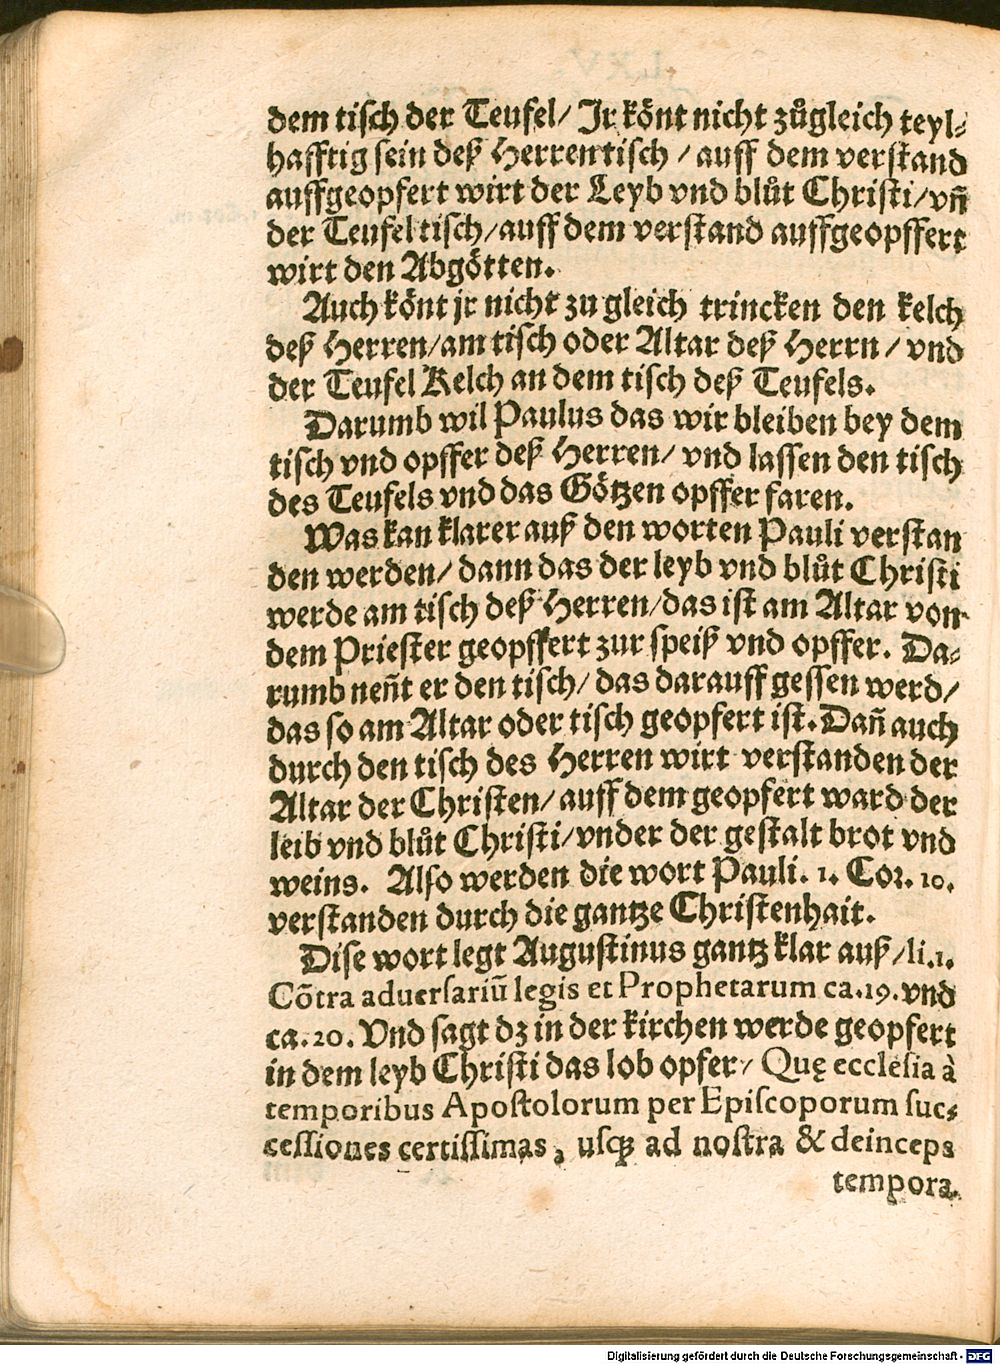 dem tisch der Teufel/ Jr könt nicht zůgleich teyl-
hafftig sein deß Herren tisch / auff dem verstand
auffgeopfert wirt der Leyb vnd blůt Christi/ vñ
der Teufel tisch/ auff dem verstand auffgeopffert
wirt den Abgötten.
Auch könt jr nicht zu gleich trincken den kelch
deß Herren/ am tisch oder Altar deß Herrn / vnd
der Teufel Kelch an dem tisch deß Teufels.
Darumb wil Paulus das wir bleiben bey dem
tisch vnd opffer deß Herren/ vnd lassen den tisch
des Teufels vnd das Götzen opffer faren.
Was kan klarer auß den worten Pauli verstan
den werden/ dann das der leyb vnd blůt Christi
werde am tisch deß Herren/ das ist am Altar von
dem Priester geopffert zur speiß vnd opffer. Da-
rumb neñt er den tisch/ das darauff gessen werd/
das so am Altar oder tisch geopfert ist. Dañ auch
durch den tisch des Herren wirt verstanden der
Altar der Christen/ auff dem geopfert ward der
leib vnd blůt Christi/ vnder der gestalt brot vnd
weins. Also werden die wort Pauli. 1. Cor. 10.
verstanden durch die gantze Christenhait.
Dise wort legt Augustinus gantz klar auß/ li.1.
Cõtra aduersariũ legis et Prophetarum ca.19. vnd
ca.20. Vnd sagt dz in der kirchen werde geopfert
in dem leyb Christi das lob opfer/ Quę ecclesia à
temporibus Apostolorum per Episcoporum suc-
cessiones certissimas, usqꝫ ad nostra & deinceps
tempora.
Digitalisierung gefördert durch die Deutsche Forschungsgemeinschaft - DFG